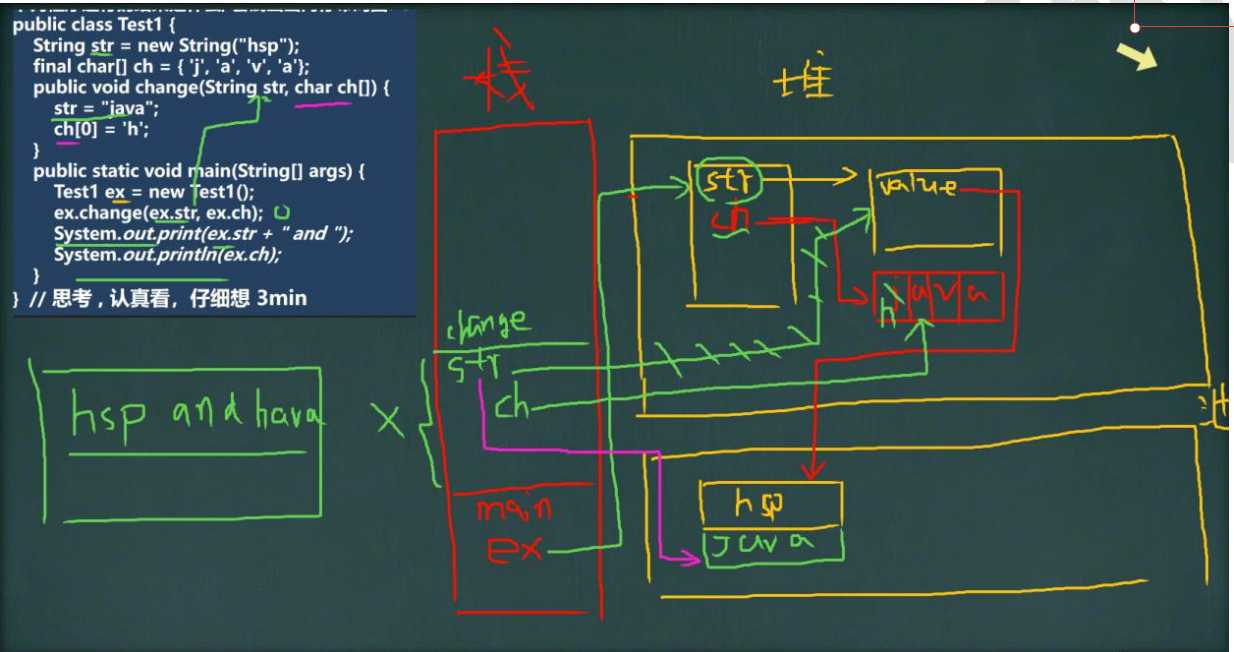 public class Test1 {
String str = new String("hsp");
final char[] ch = { 'j', 'a', 'v', 'a'};
public void change(String str, char ch[]) {
str = "java";
ch[0] = 'h';
}
public static void main(String[] args) {
Test1 ex = new Test1();
ex.change(ex.str, ex.ch);
System.out.print(ex.str + " and ");
System.out.println(ex.ch);
}
} // 思考，认真看，仔细想 3min
栈
堆
str
ch
value
h a v a
change
str
ch
main
ex
hsp
java
hsp and hava
X